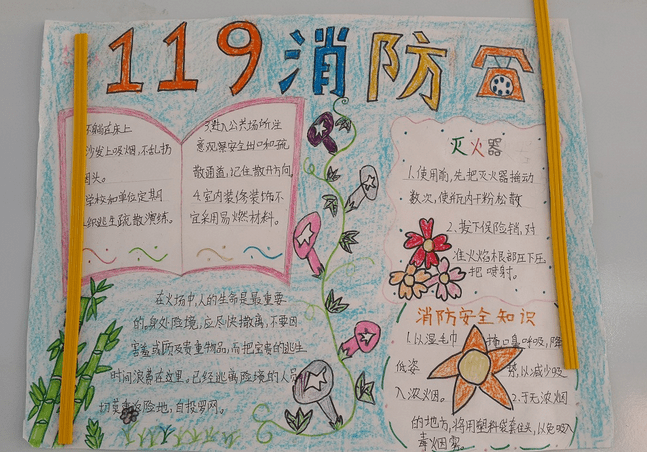 119消防
不能在床上
沙发上吸烟,不乱扔
因头。
学校和单位定期
织逃生疏散演练。
3.进入公共场所注
意观察安全出口和疏
散通道,记住散开方向
4.室内装修装饰不
宜采用易燃材料。
灭火器
1.使用前,先把灭火器摇动
数次,使瓶内干粉松散
2.拨下保险销,对
准火焰根部压下压
把喷射。
在火场中,人的生命是最重要
的,身处险境,应尽快撤离,不要因
害羞或顾及贵重物品,而把宝贵的逃生
时间浪费在这里。已经逃离险境的人员
切莫重返险地,自投罗网。
消防安全知识
1.以湿毛巾 掩口鼻呼吸,降
低姿 势,以减少吸
入浓烟。 2.于无浓烟
的地方,将用塑料袋套住头,以免吸入
毒烟雾。